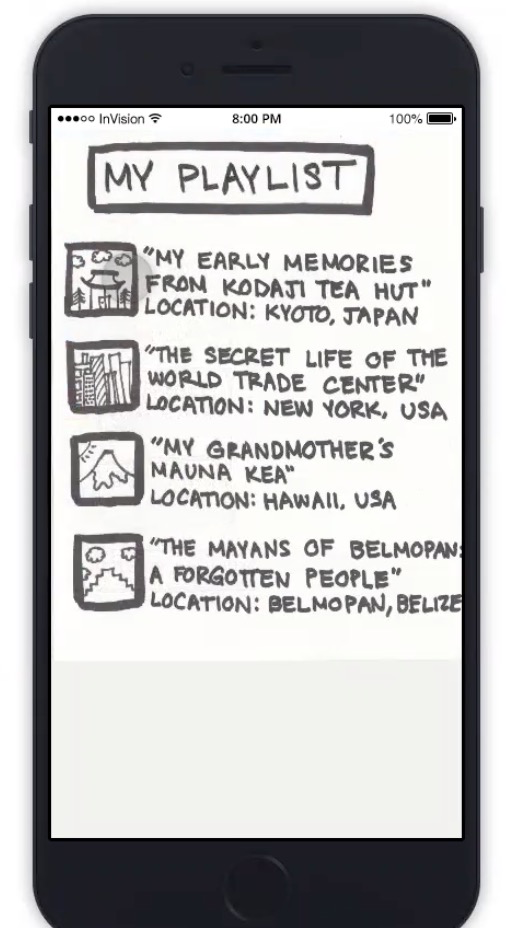 InVision 8:00 PM 100%
MY PLAYLIST
"MY EARLY MEMORIES
FROM KODAJI TEA HUT"
LOCATION: KYOTO, JAPAN
"THE SECRET LIFE OF THE
WORLD TRADE CENTER"
LOCATION: NEW YORK, USA
"MY GRANDMOTHER'S
MAUNA KEA"
LOCATION: HAWAII, USA
"THE MAYANS OF BELMOPAN:
A FORGOTTEN PEOPLE"
LOCATION: BELMOPAN, BELIZE